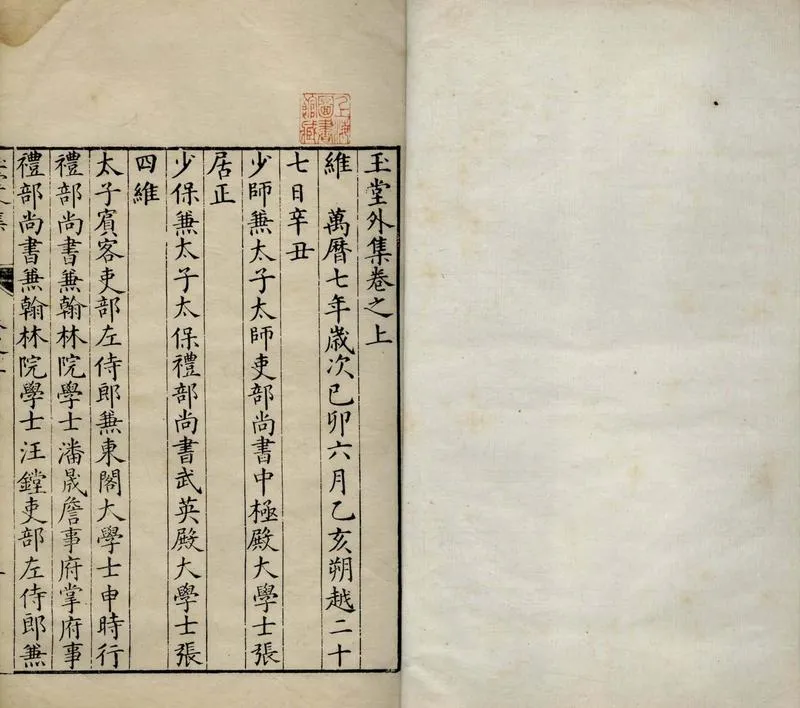 上海
圖書
館藏
玉堂外集卷之上
維　萬曆七年歲次己卯六月乙亥朔越二十
七日辛丑
少師兼太子太師吏部尚書中極殿大學士張
居正
少保兼太子太保禮部尚書武英殿大學士張
四維
太子賓客吏部左侍郎兼東閣大學士申時行
禮部尚書兼翰林院學士潘晟詹事府掌府事
禮部尚書兼翰林院學士汪鏜吏部左侍郎兼